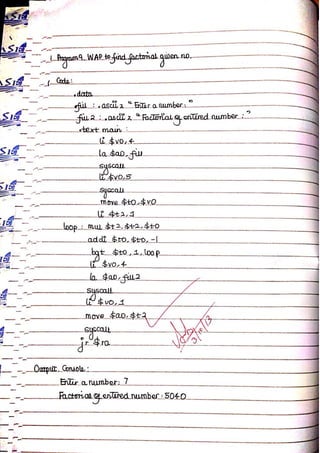 1. Program 9. WAP to find factorial given no.
Code:
.data
fill : .asciiz "Enter a number: "
fill2 : .asciiz "Factorial of entered number : "
.text main :
li $v0,4
la $a0, fill
syscall
li $v0,5
syscall
move $t0,$v0
li $t2,1
loop: mul $t2,$t2,$t0
addi $t0,$t0,-1
bgt $t0,1,loop
li $v0,4
la $a0, fill2
syscall
li $v0,1
move $a0,$t2
syscall
jr $ra
Output: Console:
Enter a number: 7
Factorial of entered number : 5040